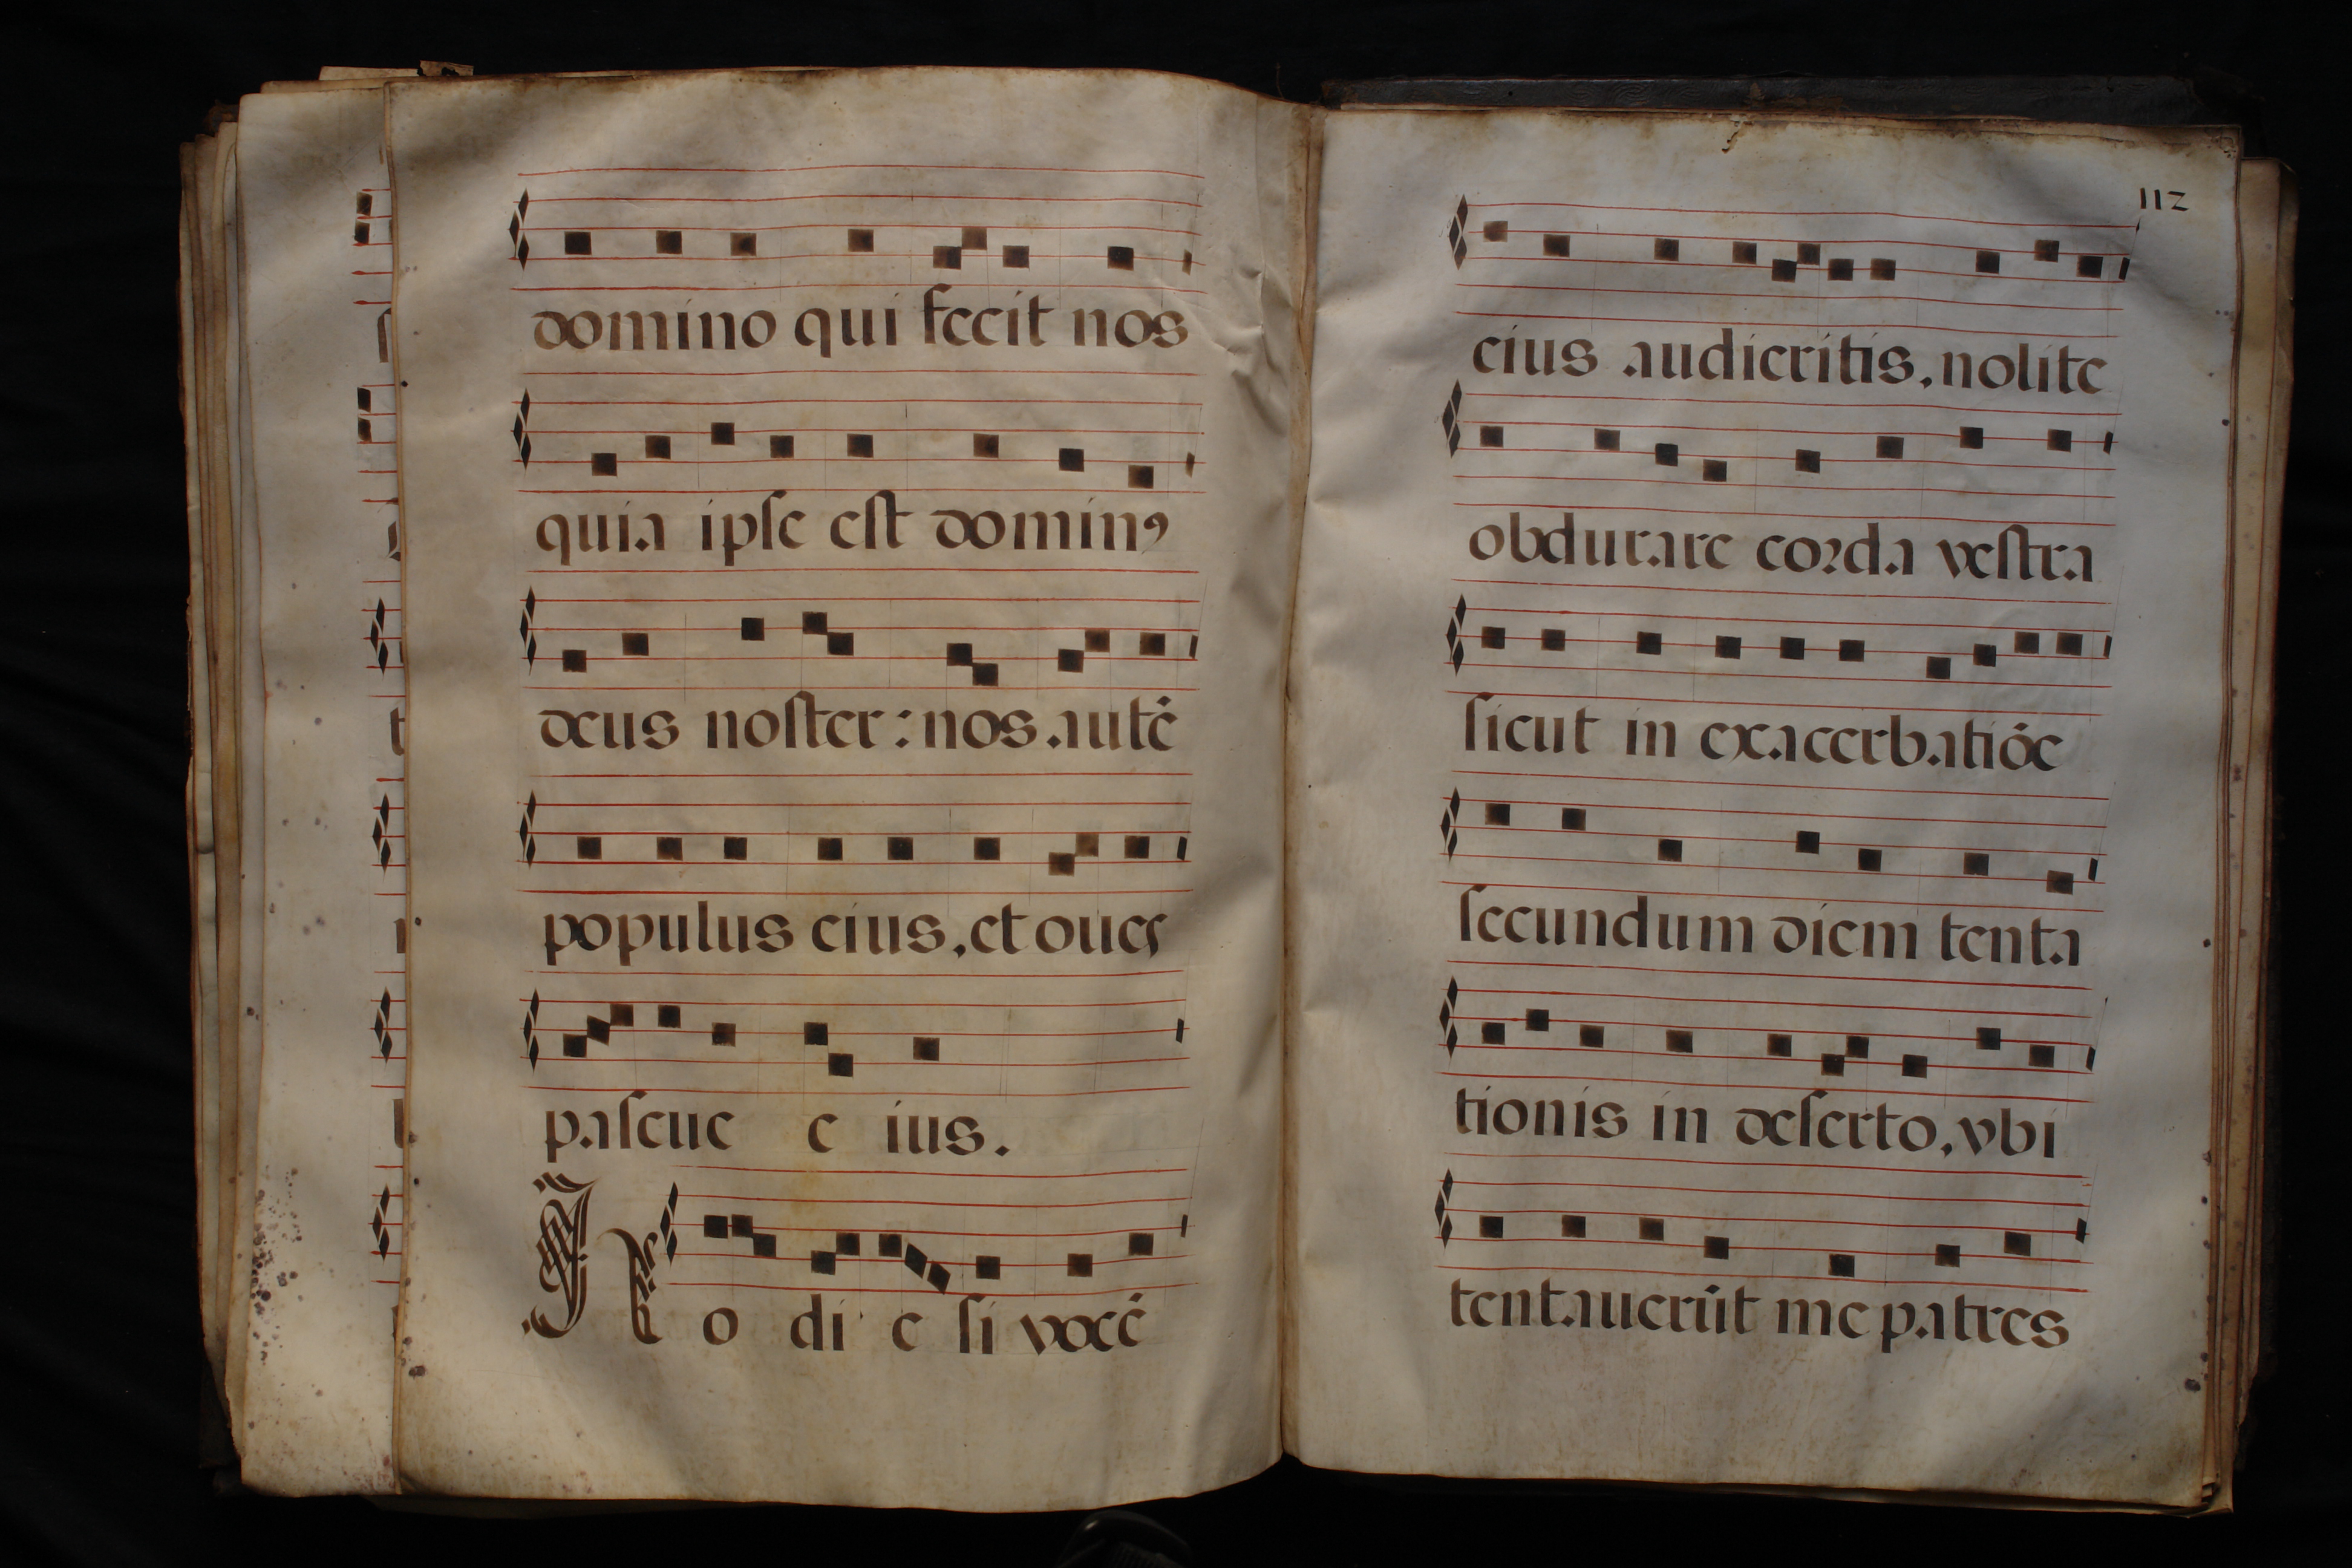 domino qui fecit nos
quia ipſe eſt dominꝰ
deus noſter: nos autē
populus eius, et oues
paſcue e ius.
Ho di e ſi vocē
112
eius audieritis, nolite
obdurare coꝛda veſtra
ſicut in exacerbatiōe
ſecundum diem tenta
tionis in deſerto, vbi
tentauerūt me patres